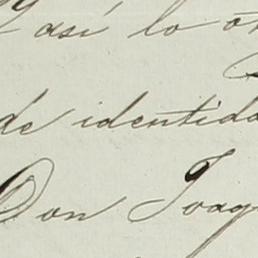 y así lo ot
de identida
Don Joaq